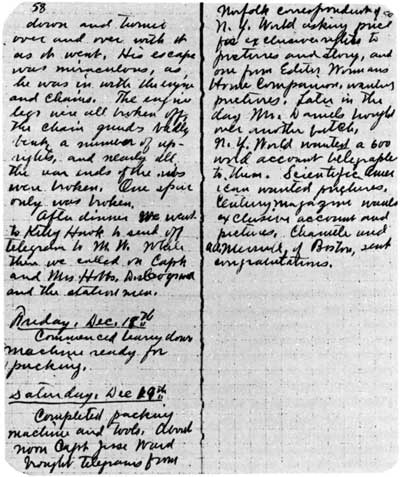 58
down and turned
over and over with it
as it went. His escape
was miraculous, as
he was in with the engine
and chains. The engine
legs were all broken off,
the chain guides badly
bent, a number of up-
rights, and nearly all
the rear ends of the ribs
were broken. One spar
only was broken.
After dinner we went
to Kitty Hawk to send off
telegram to M. W. While
there we called on Capt.
and Mrs. Hobbs, Dr. Cogswell
and the station men.
Friday, Dec. 18th
Commenced tearing down
machine ready for
packing.
Saturday, Dec 19th
Completed packing
machine and tools. About
noon Capt Jesse Ward
brought telegrams from
Norfolk correspondent of
N. Y. World asking price
for exclusive rights to
pictures and story, and
one from Editor Womans
Home Companion, wanting
pictures. Later in the
day Mr. Daniels brought
over another batch,
N. Y. World wanted a 600
word account telegraphed
to them. Scientific Amer
ican wanted pictures.
Century Magazine wants
exclusive account and
pictures. Chanute and
Merrill, of Boston, sent
congratulations.